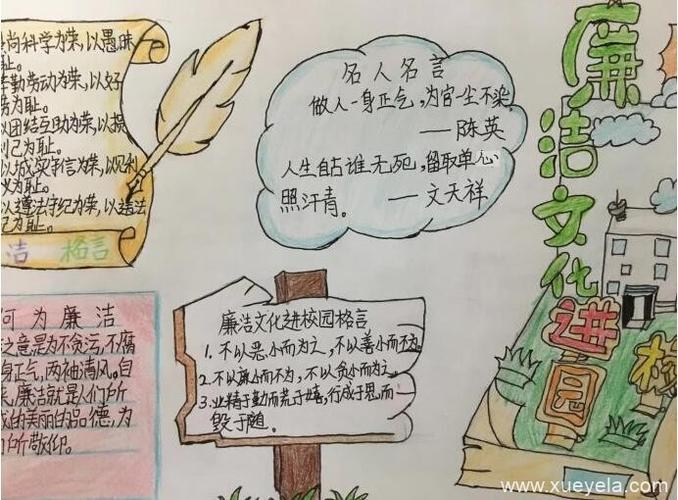 尚科学为荣,以愚昧
耻。
勤劳动为荣,以好
为耻。
以团结互助为荣,以损
利己为耻。
以诚实守信为荣,以见利
义为耻。
以遵法守纪为荣,以违法
为耻。
洁 格言
名人名言
做人一身正气,为官一尘不染
——陈英
人生自古谁无死,留取单心
照汗青。 ——文天祥
廉洁文化
进校园
何为廉洁
之意是为不贪污,不腐
身正气,两袖清风。自
,廉洁就是人们所
成的美丽的品德,为
所敬仰。
廉洁文化进校园格言
1.不以恶小而为之,不以善小而不为。
2.不以廉小而不为,不以贪小而为之。
3.业精于勤而荒于嬉,行成于思而
毁于随。
www.xueyela.com